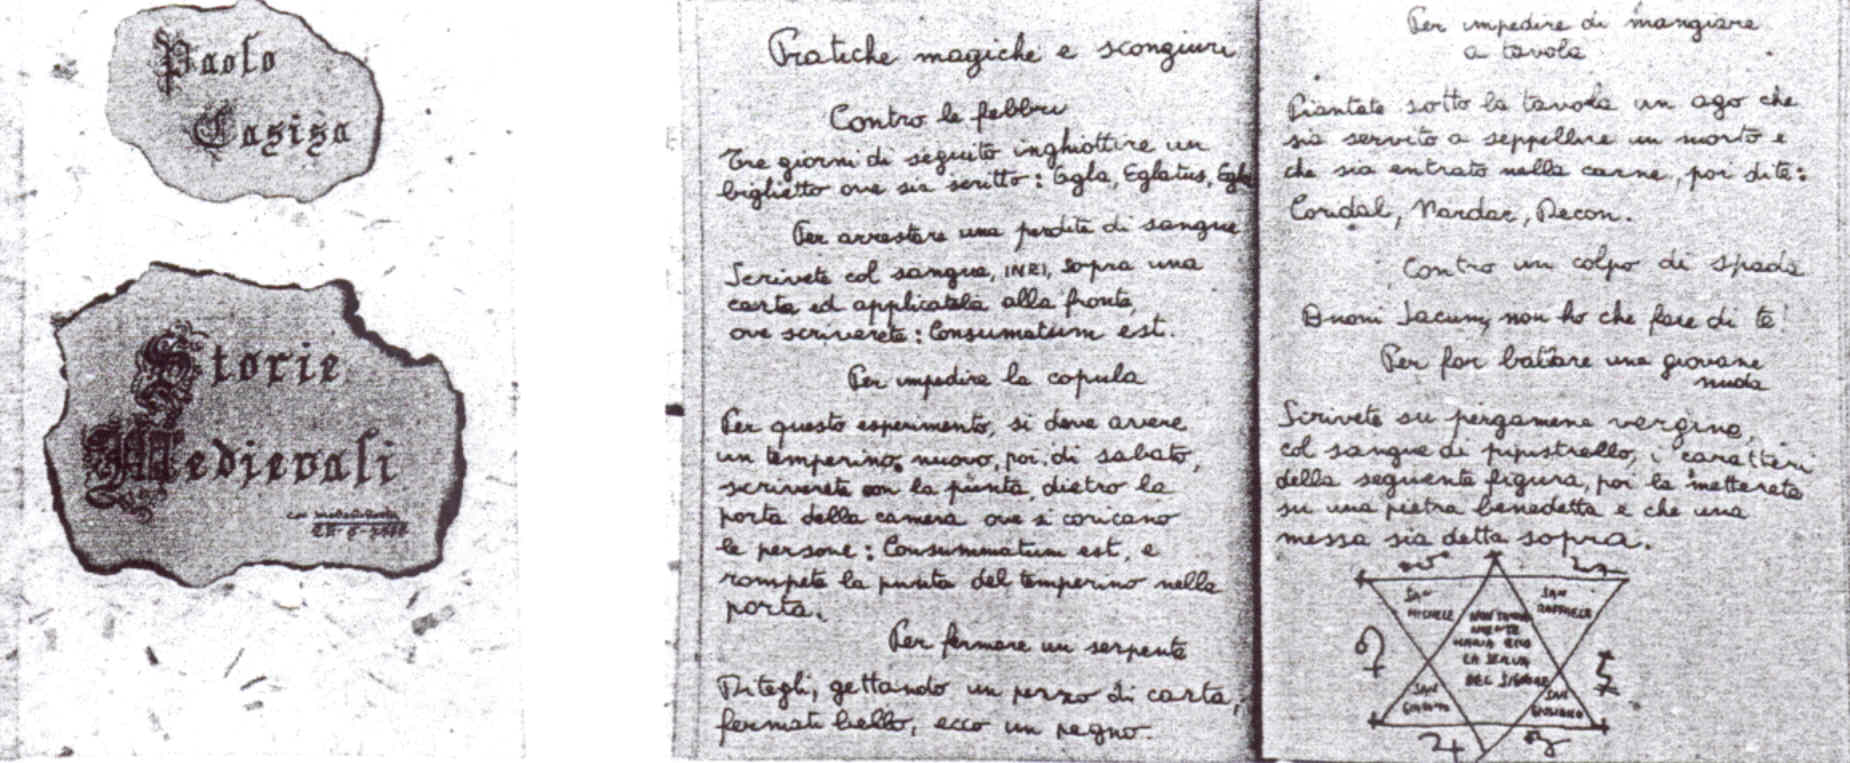 Paolo
Casisa
Storie
Medievali
Pratiche magiche e scongiuri
Contro le febbri
Tre giorni di seguito inghiottire un
biglietto ove sia scritto: Egla, Eglatus, Egla
Per arrestare una perdita di sangue
Scrivete col sangue, INRI, sopra una
carta ed applicatela alla fronte,
ove scriverete: Consumatum est.
Per impedire la copula
Per questo esperimento, si deve avere
un temperino nuovo, poi di sabato,
scriverete con la punta, dietro la
porta della camera ove si coricano
le persone: Consummatum est, e
rompete la punta del temperino nella
porta.
Per fermare un serpente
Ditegli, gettando un pezzo di carta,
fermati bello, ecco un pegno.
Per impedire di mangiare
a tavola
Piantate sotto la tavola un ago che
sia servito a seppellire un morto e
che sia entrato nella carne, poi dite:
Coridal, Nardac, Decon.
Contro un colpo di spada
Buoni Jacum, non ho che fare di te!
Per far ballare una giovane
nuda
Scrivete su pergamena vergine,
col sangue di pipistrello, i caratteri
della seguente figura, poi la metterete
su una pietra benedetta e che una
messa sia detta sopra.
SAN
MICHELE
SAN
RAFFAELE
MARIA ECCO
LA SERVA
DEL SIGNORE
SAN
SAN